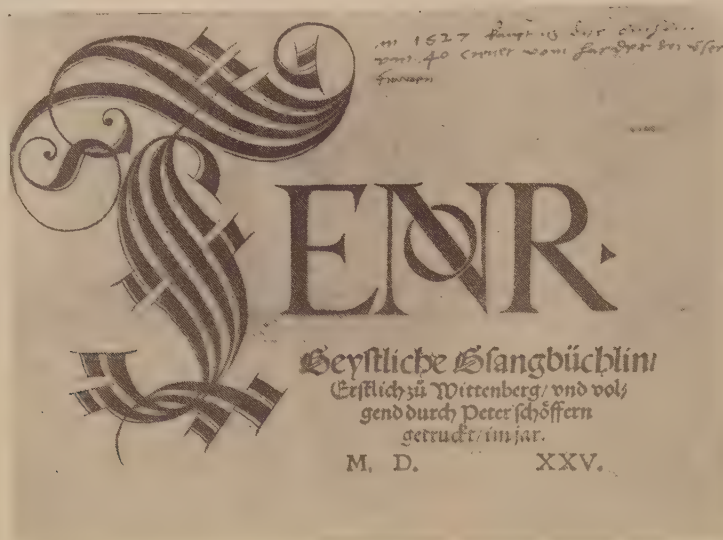 1527
40 vom
TENOR.
Geystliche Gsangbüchlin/
Erstlich zů Wittenberg/ vnd vol⸗
gend durch Peter schöffern
getruckt/ im jar.
M. D. XXV.